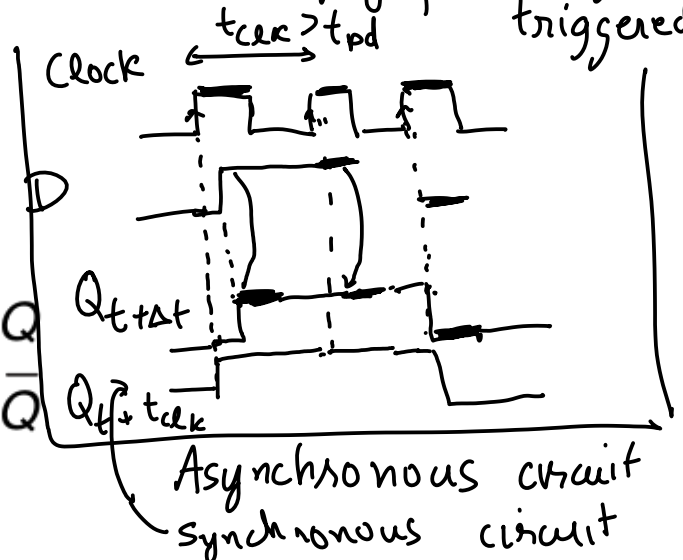 t_clk > t_pd
triggered
Clock
D
Q_t+Δt
Q
Q̅
Q_t + t_clk
Asynchronous circuit
synchronous circuit